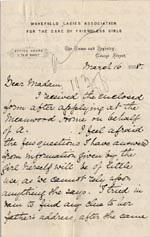 WAKEFIELD LADIES ASSOCIATION
FOR THE CARE OF FRIENDLESS GIRLS
The Home and Registry,
George Street,
March 16
Dear Madam,
I received the enclosed
form after applying at the
Meanwood Home on behalf
of A. I feel afraid
the few questions I have answered
from information given by the
girl herself will be of little
use, as we cannot rely upon
anything she says. I tried in
vain to find any clue to her
father's address, after she came